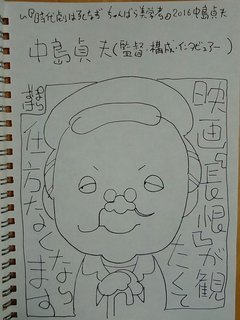 『時代劇は死なず ちゃんばら美学考』2016中島貞夫
中島貞夫(監督・構成・インタビュアー)
映画「長恨」が観
たくて
なら
仕方なくなります